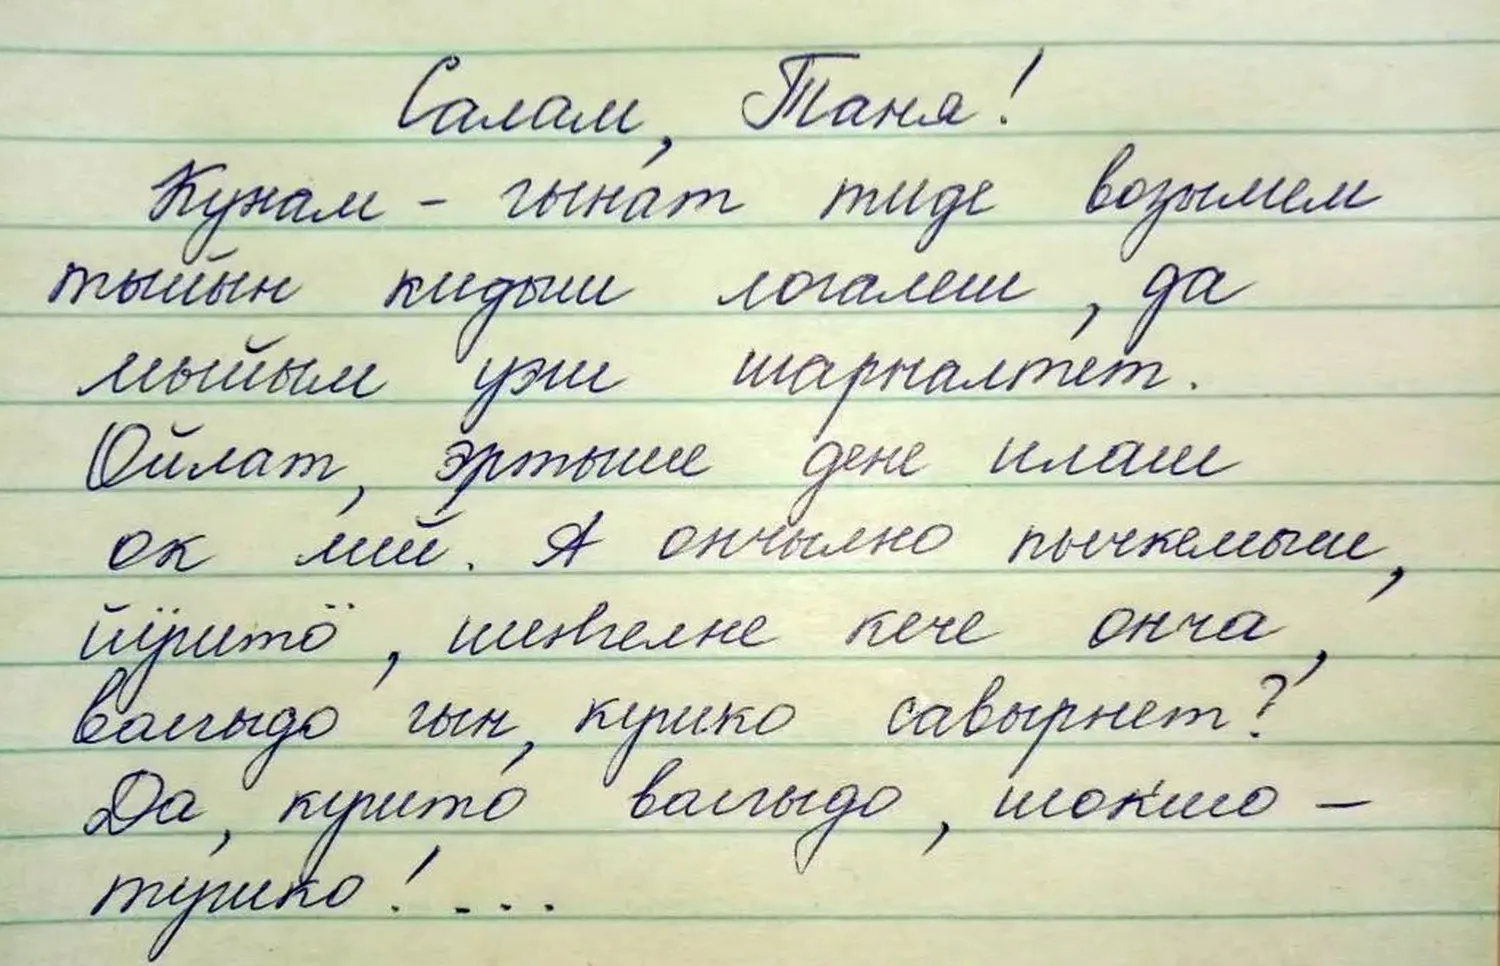 Салам, Таня!
Кунам – гынат тиде возымем
тыйын кидыш логалеш, да
мыйым уэш шарналтет.
Ойлат, эртыше дене илаш
ок лий. А ончылно пычкемыш,
йӱштӧ, шеҥгелне кече онча,
волгыдо гын, кушко савырнет?
Да, кушто волгыдо, шокшо –
тушко!...